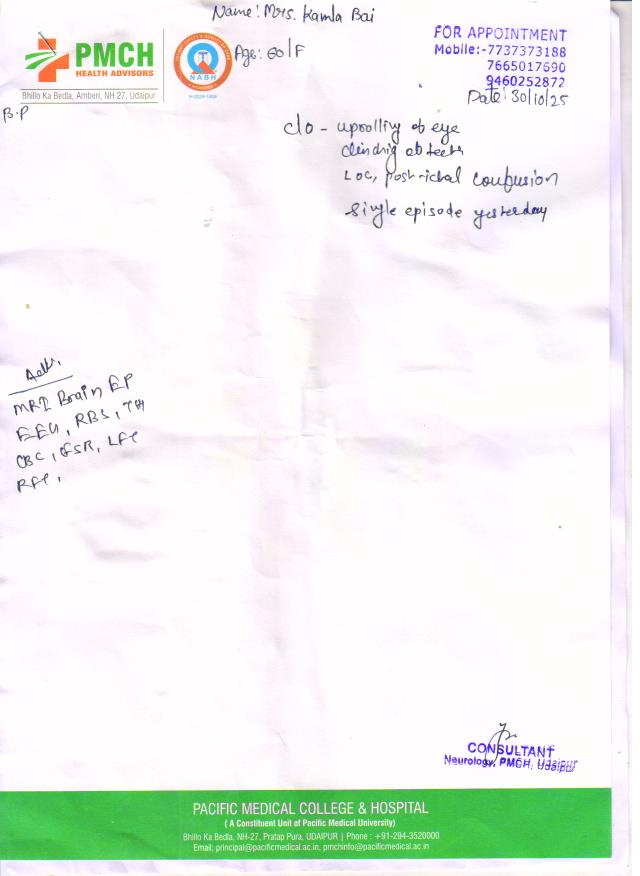 Name: Mrs. Kamla Bai
PMCH
HEALTH ADVISORS
NABH
H-2024-1409
Bhillo Ka Bedla, Amberi, NH 27, Udaipur
Age: 60/F
FOR APPOINTMENT
Mobile:-7737373188
7665017690
9460252872
Date: 30/10/25
B.P
c/o - uprolling of eye
clinching of teeth
LOC, post ictal confusion
Single episode yesterday
Adv.
MRI Brain EP
EEG, RBS,
CBC, ESR, LFT
RFT,
CONSULTANT
Neurology, PMCH, Udaipur
PACIFIC MEDICAL COLLEGE & HOSPITAL
( A Constituent Unit of Pacific Medical University)
Bhillo Ka Bedla, NH-27, Pratap Pura, UDAIPUR | Phone : +91-294-3520000
Email: principal@pacificmedical.ac.in, pmchinfo@pacificmedical.ac.in